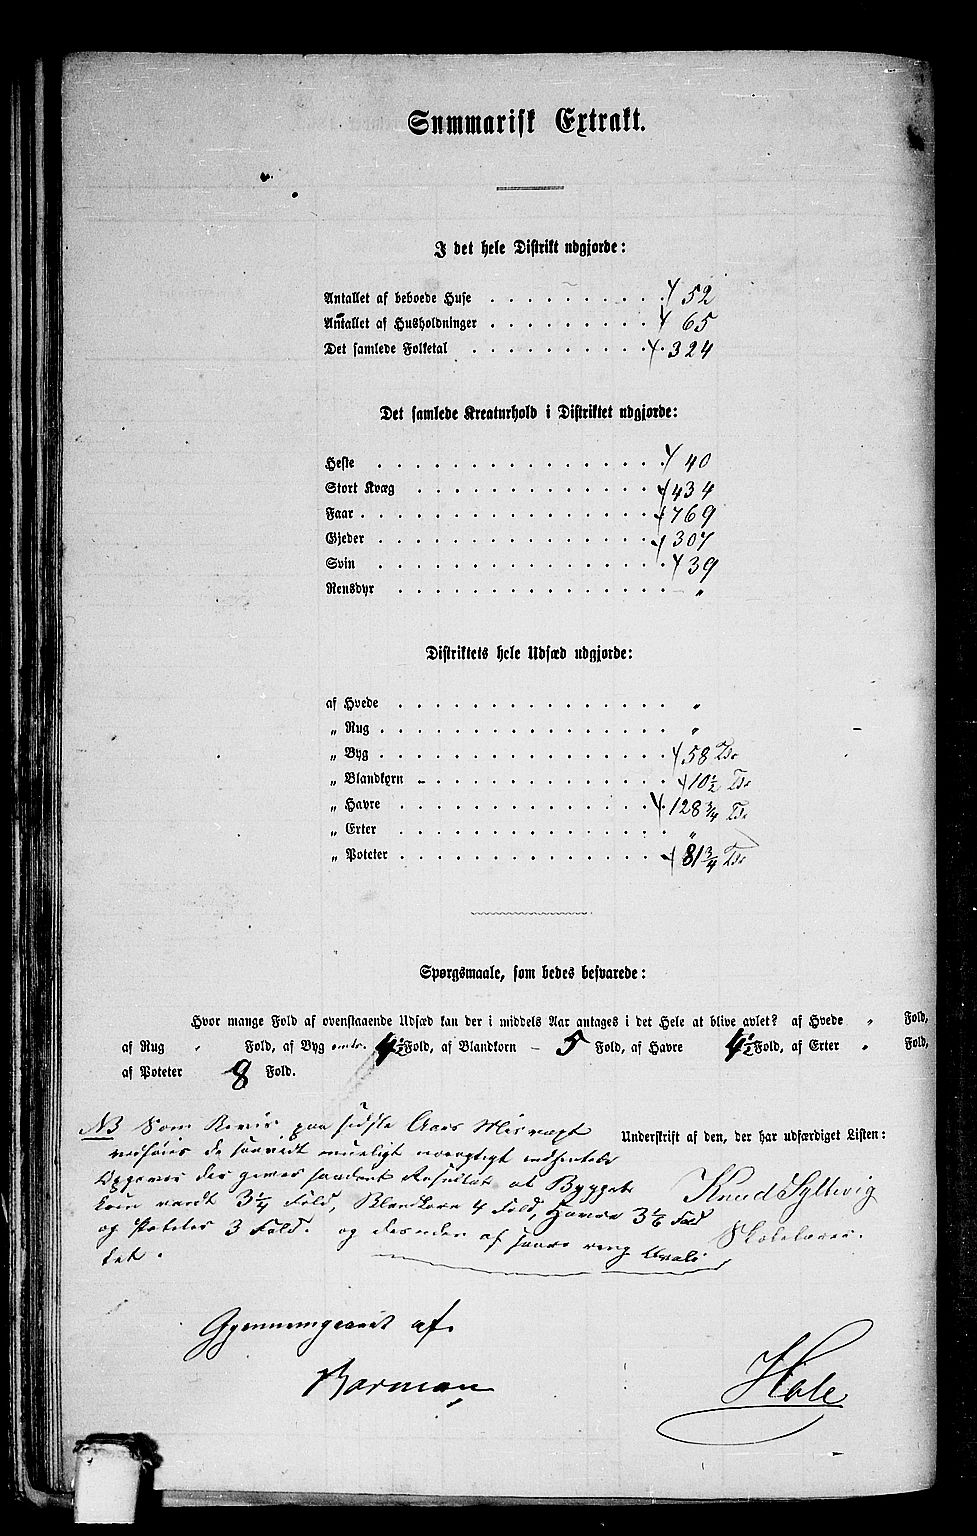 Summarisk Extrakt.
I det hele Distrikt udgjorde:
Antallet af beboede Huse . . . . . . . . . . 52
Antallet af Husholdninger . . . . . . . . . 65
Det samlede Folketal . . . . . . . . . . . 324
Det samlede Kreaturhold i Distriktet udgjorde:
Heste . . . . . . . . . . . . . . . . 40
Stort Kvæg . . . . . . . . . . . . . 434
Faar . . . . . . . . . . . . . . . . 769
Gjeder . . . . . . . . . . . . . . . 307
Svin . . . . . . . . . . . . . . . . 39
Rensdyr . . . . . . . . . . . . . . . "
Distriktets hele Udsæd udgjorde:
af Hvede . . . . . . . . . . . . . . "
„ Rug . . . . . . . . . . . . . . . "
„ Byg . . . . . . . . . . . . . . . 58 Tdr
„ Blandkorn . . . . . . . . . . . . 10 1/2 Tdr
„ Havre . . . . . . . . . . . . . . 128 3/4 Tdr
„ Erter . . . . . . . . . . . . . . "
„ Poteter . . . . . . . . . . . . . 81 3/4 Tdr
Spørgsmaale, som bedes besvarede:
Hvor mange Fold af ovenstaaende Udsæd kan der i middels Aar antages i det Hele at blive avlet? af Hvede " Fold,
af Rug " Fold, af Byg omtr. 4 1/2 Fold, af Blandkorn – 5 Fold, af Havre 4 1/2 Fold, af Erter " Fold,
af Poteter 8 Fold.
NB Som Bevis paa sidste Aars Misvæxt
Underskrift af den, der har udfærdiget Listen:
de saavidt mueligt nøiagtigt indhentede
Opgaver der giver saadant Resultat at Bygget
Knud Syltevig
kun 3 1/4 Fold, Blandkorn 4 Fold, Havre 3 1/6 Fold
og Poteter 3 Fold og desuden af
Skolelærer.
tet.
Gjennemgaaet af
Borman
Hole